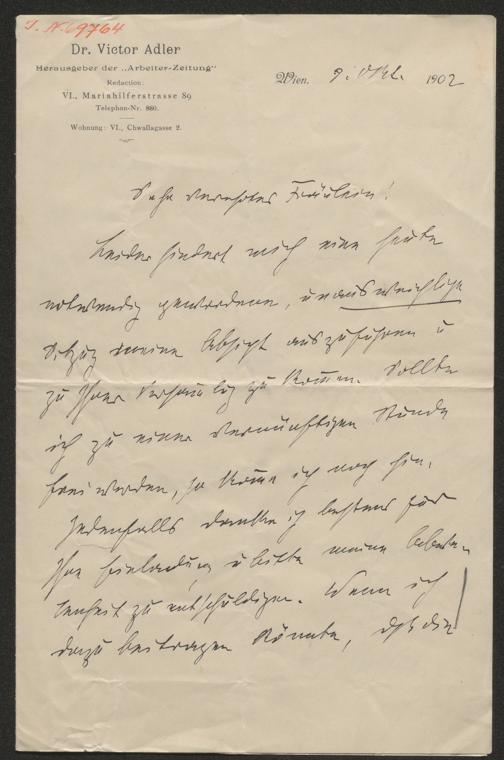 I. N. 69764
Dr. Victor Adler
Herausgeber der „Arbeiter-Zeitung“
Redaction:
VI., Mariahilferstrasse 89
Telephon-Nr. 880.
Wohnung: VI., Chwallagasse 2.
Wien, 9. Okt. 1902
Sehr verehrtes Fräulein!
Leider hindert mich eine heute
notwendig gewordene, unausweichliche
Sitzung meine Absicht auszuführen u
zu Ihrer Versamlg zu kommen. Sollte
ich zu einer vernünftigen Stunde
frei werden, so komme ich noch hin.
Jedenfalls danke ich bestens für
Ihre Einladung u bitte meine
zu entschuldigen. Wenn ich
dazu beitragen könnte, daß die